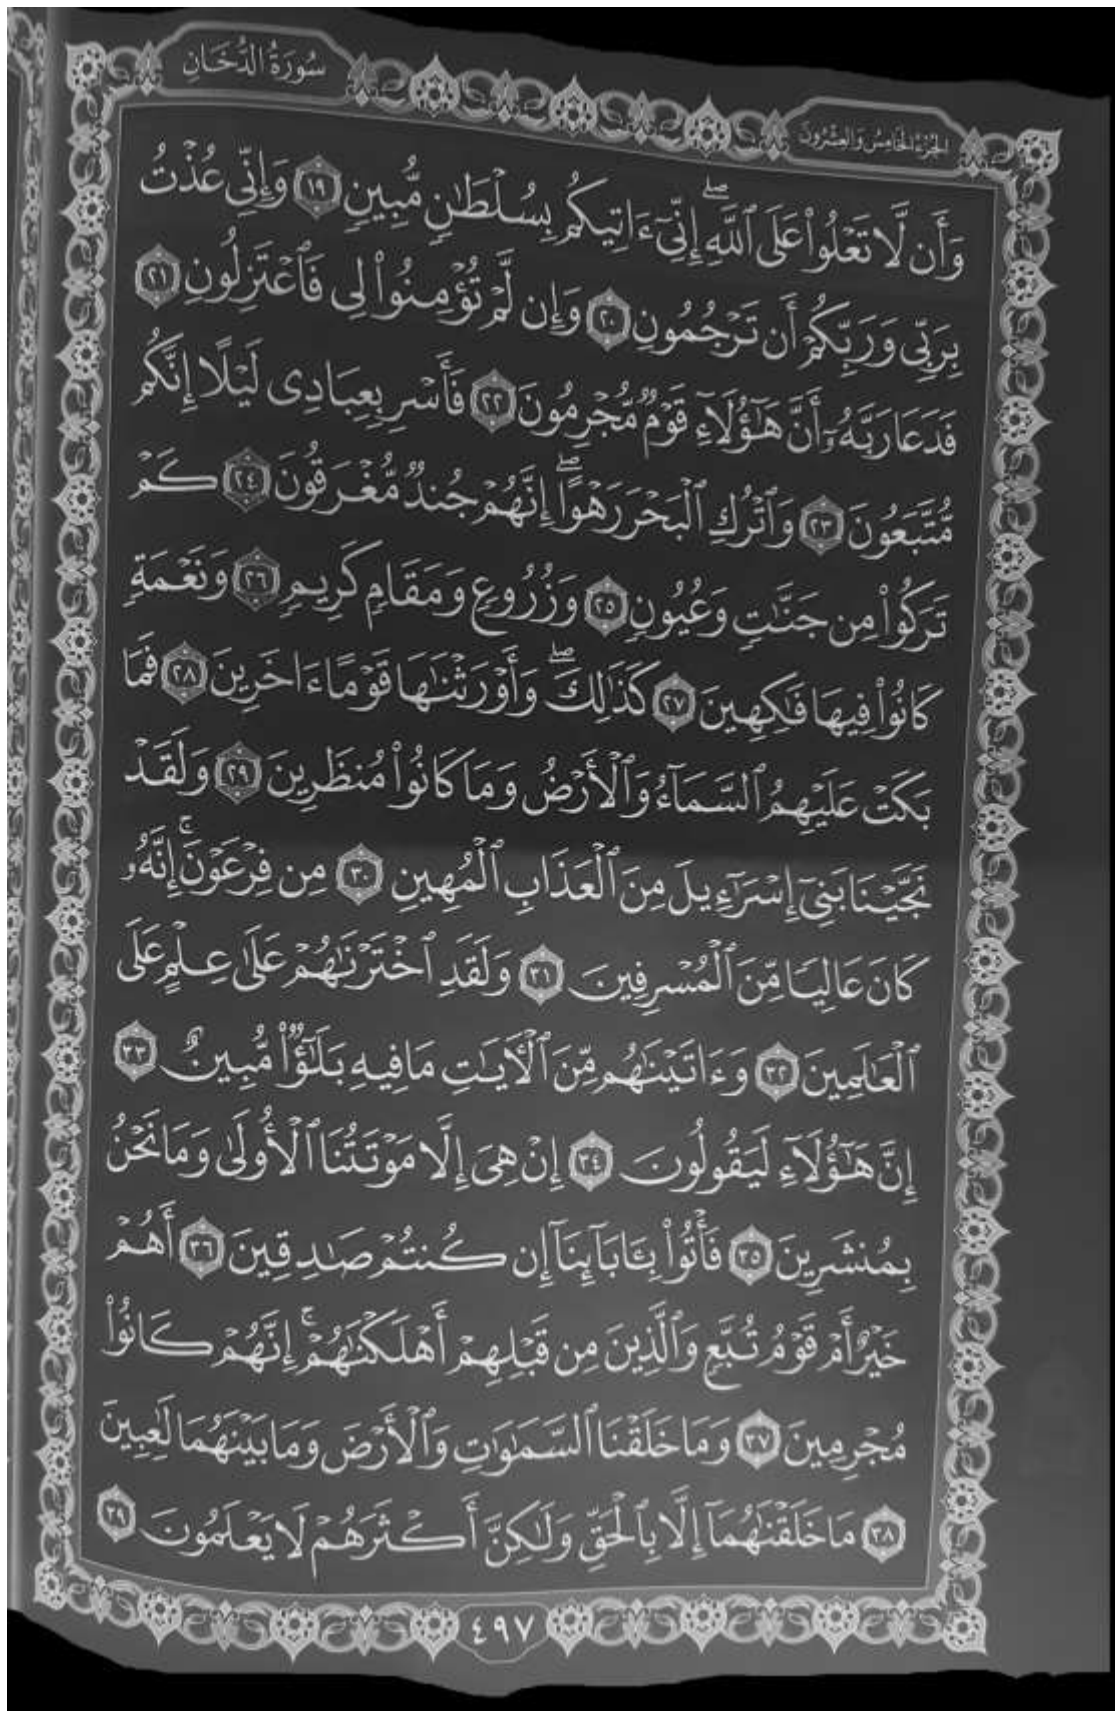 الجزء الخامس والعشرون
سُورَةُ الدُّخَانِ
وَأَن لَّا تَعْلُوا۟ عَلَى ٱللَّهِ ۖ إِنِّىٓ ءَاتِيكُم بِسُلْطَٰنٍ مُّبِينٍ ١٩ وَإِنِّى عُذْتُ
بِرَبِّى وَرَبِّكُمْ أَن تَرْجُمُونِ ٢٠ وَإِن لَّمْ تُؤْمِنُوا۟ لِى فَٱعْتَزِلُونِ ٢١
فَدَعَا رَبَّهُۥٓ أَنَّ هَٰٓؤُلَآءِ قَوْمٌ مُّجْرِمُونَ ٢٢ فَأَسْرِ بِعِبَادِى لَيْلًا إِنَّكُم
مُّتَّبَعُونَ ٢٣ وَٱتْرُكِ ٱلْبَحْرَ رَهْوًا ۖ إِنَّهُمْ جُندٌ مُّغْرَقُونَ ٢٤ كَمْ
تَرَكُوا۟ مِن جَنَّٰتٍ وَعُيُونٍ ٢٥ وَزُرُوعٍ وَمَقَامٍ كَرِيمٍ ٢٦ وَنَعْمَةٍ
كَانُوا۟ فِيهَا فَٰكِهِينَ ٢٧ كَذَٰلِكَ ۖ وَأَوْرَثْنَٰهَا قَوْمًا ءَاخَرِينَ ٢٨ فَمَا
بَكَتْ عَلَيْهِمُ ٱلسَّمَآءُ وَٱلْأَرْضُ وَمَا كَانُوا۟ مُنظَرِينَ ٢٩ وَلَقَدْ
نَجَّيْنَا بَنِىٓ إِسْرَٰٓءِيلَ مِنَ ٱلْعَذَابِ ٱلْمُهِينِ ٣٠ مِن فِرْعَوْنَ ۚ إِنَّهُۥ
كَانَ عَالِيًا مِّنَ ٱلْمُسْرِفِينَ ٣١ وَلَقَدِ ٱخْتَرْنَٰهُمْ عَلَىٰ عِلْمٍ عَلَى
ٱلْعَٰلَمِينَ ٣٢ وَءَاتَيْنَٰهُم مِّنَ ٱلْءَايَٰتِ مَا فِيهِ بَلَٰٓؤٌا۟ مُّبِينٌ ٣٣
إِنَّ هَٰٓؤُلَآءِ لَيَقُولُونَ ٣٤ إِنْ هِىَ إِلَّا مَوْتَتُنَا ٱلْأُولَىٰ وَمَا نَحْنُ
بِمُنشَرِينَ ٣٥ فَأْتُوا۟ بِـَٔابَآئِنَآ إِن كُنتُمْ صَٰدِقِينَ ٣٦ أَهُمْ
خَيْرٌ أَمْ قَوْمُ تُبَّعٍ وَٱلَّذِينَ مِن قَبْلِهِمْ أَهْلَكْنَٰهُمْ ۚ إِنَّهُمْ كَانُوا۟
مُجْرِمِينَ ٣٧ وَمَا خَلَقْنَا ٱلسَّمَٰوَٰتِ وَٱلْأَرْضَ وَمَا بَيْنَهُمَا لَٰعِبِينَ
٣٨ مَا خَلَقْنَٰهُمَآ إِلَّا بِٱلْحَقِّ وَلَٰكِنَّ أَكْثَرَهُمْ لَا يَعْلَمُونَ ٣٩
٤٩٧